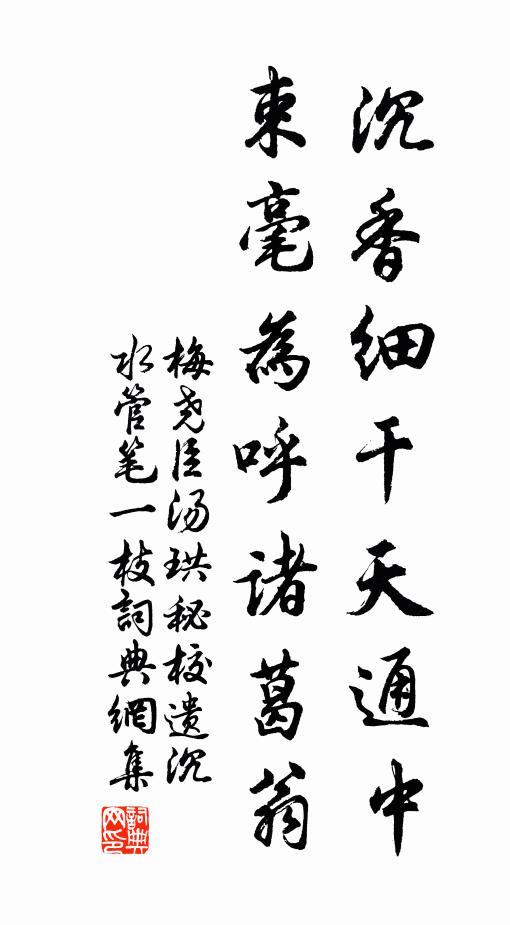 沉香细干天通中
束毫為呼诸葛翁
梅尧臣汤珙秘校遗沉
水管笔一枝詞典網集
詞典
网印